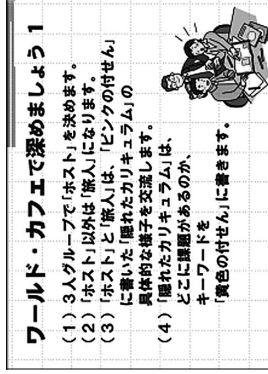 ワールド・カフェで深めましょう 1
(1)3人グループで「ホスト」を決めます。
(2)「ホスト」以外は「旅人」になります。
(3)「ホスト」と「旅人」は、「ピンクの付せん」
に書いた「隠れたカリキュラム」の
具体的な様子を交流します。
(4)「隠れたカリキュラム」は、
どこに課題があるのか、
キーワードを
「黄色の付せん」に書きます。